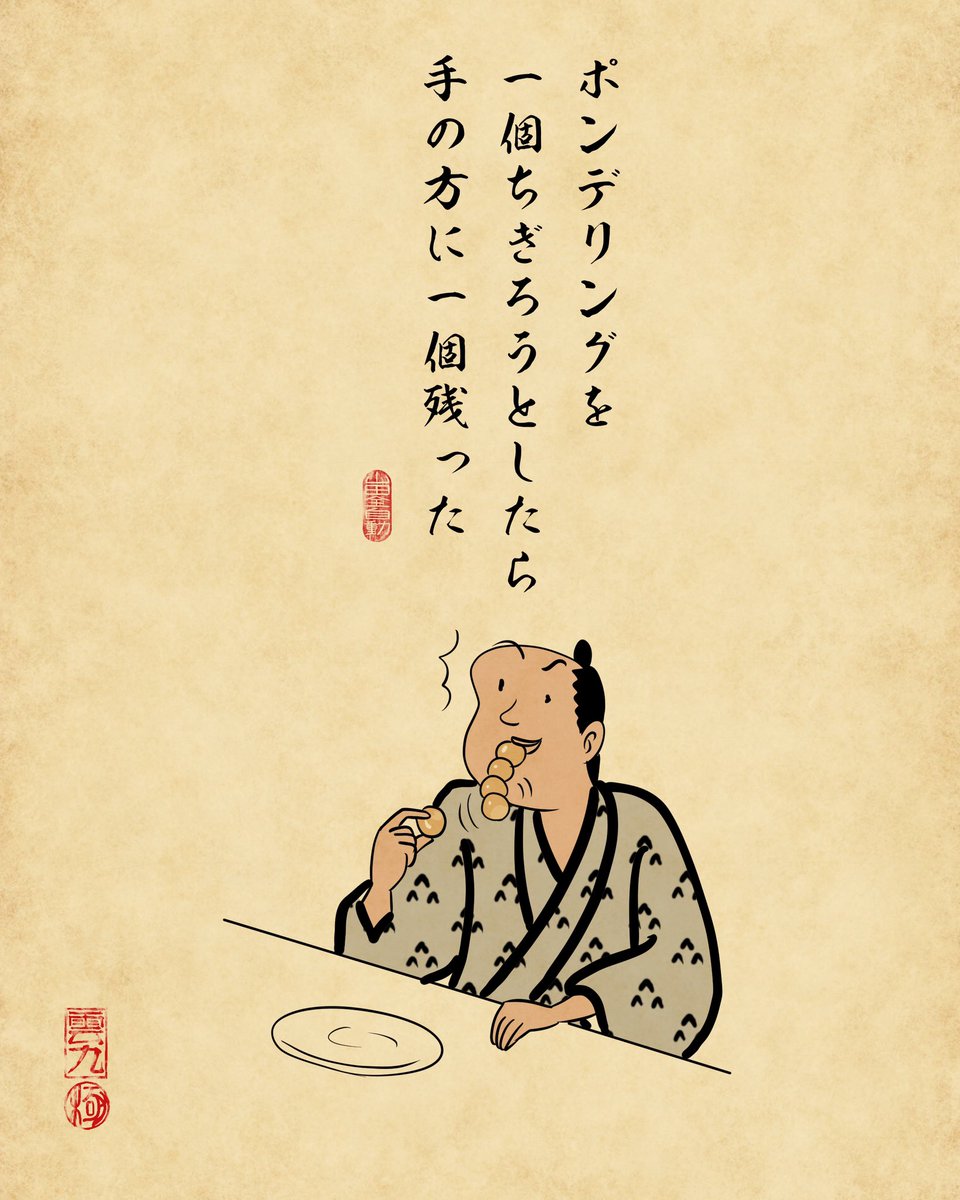 ポンデリングを
一個ちぎろうとしたら
手の方に一個残った